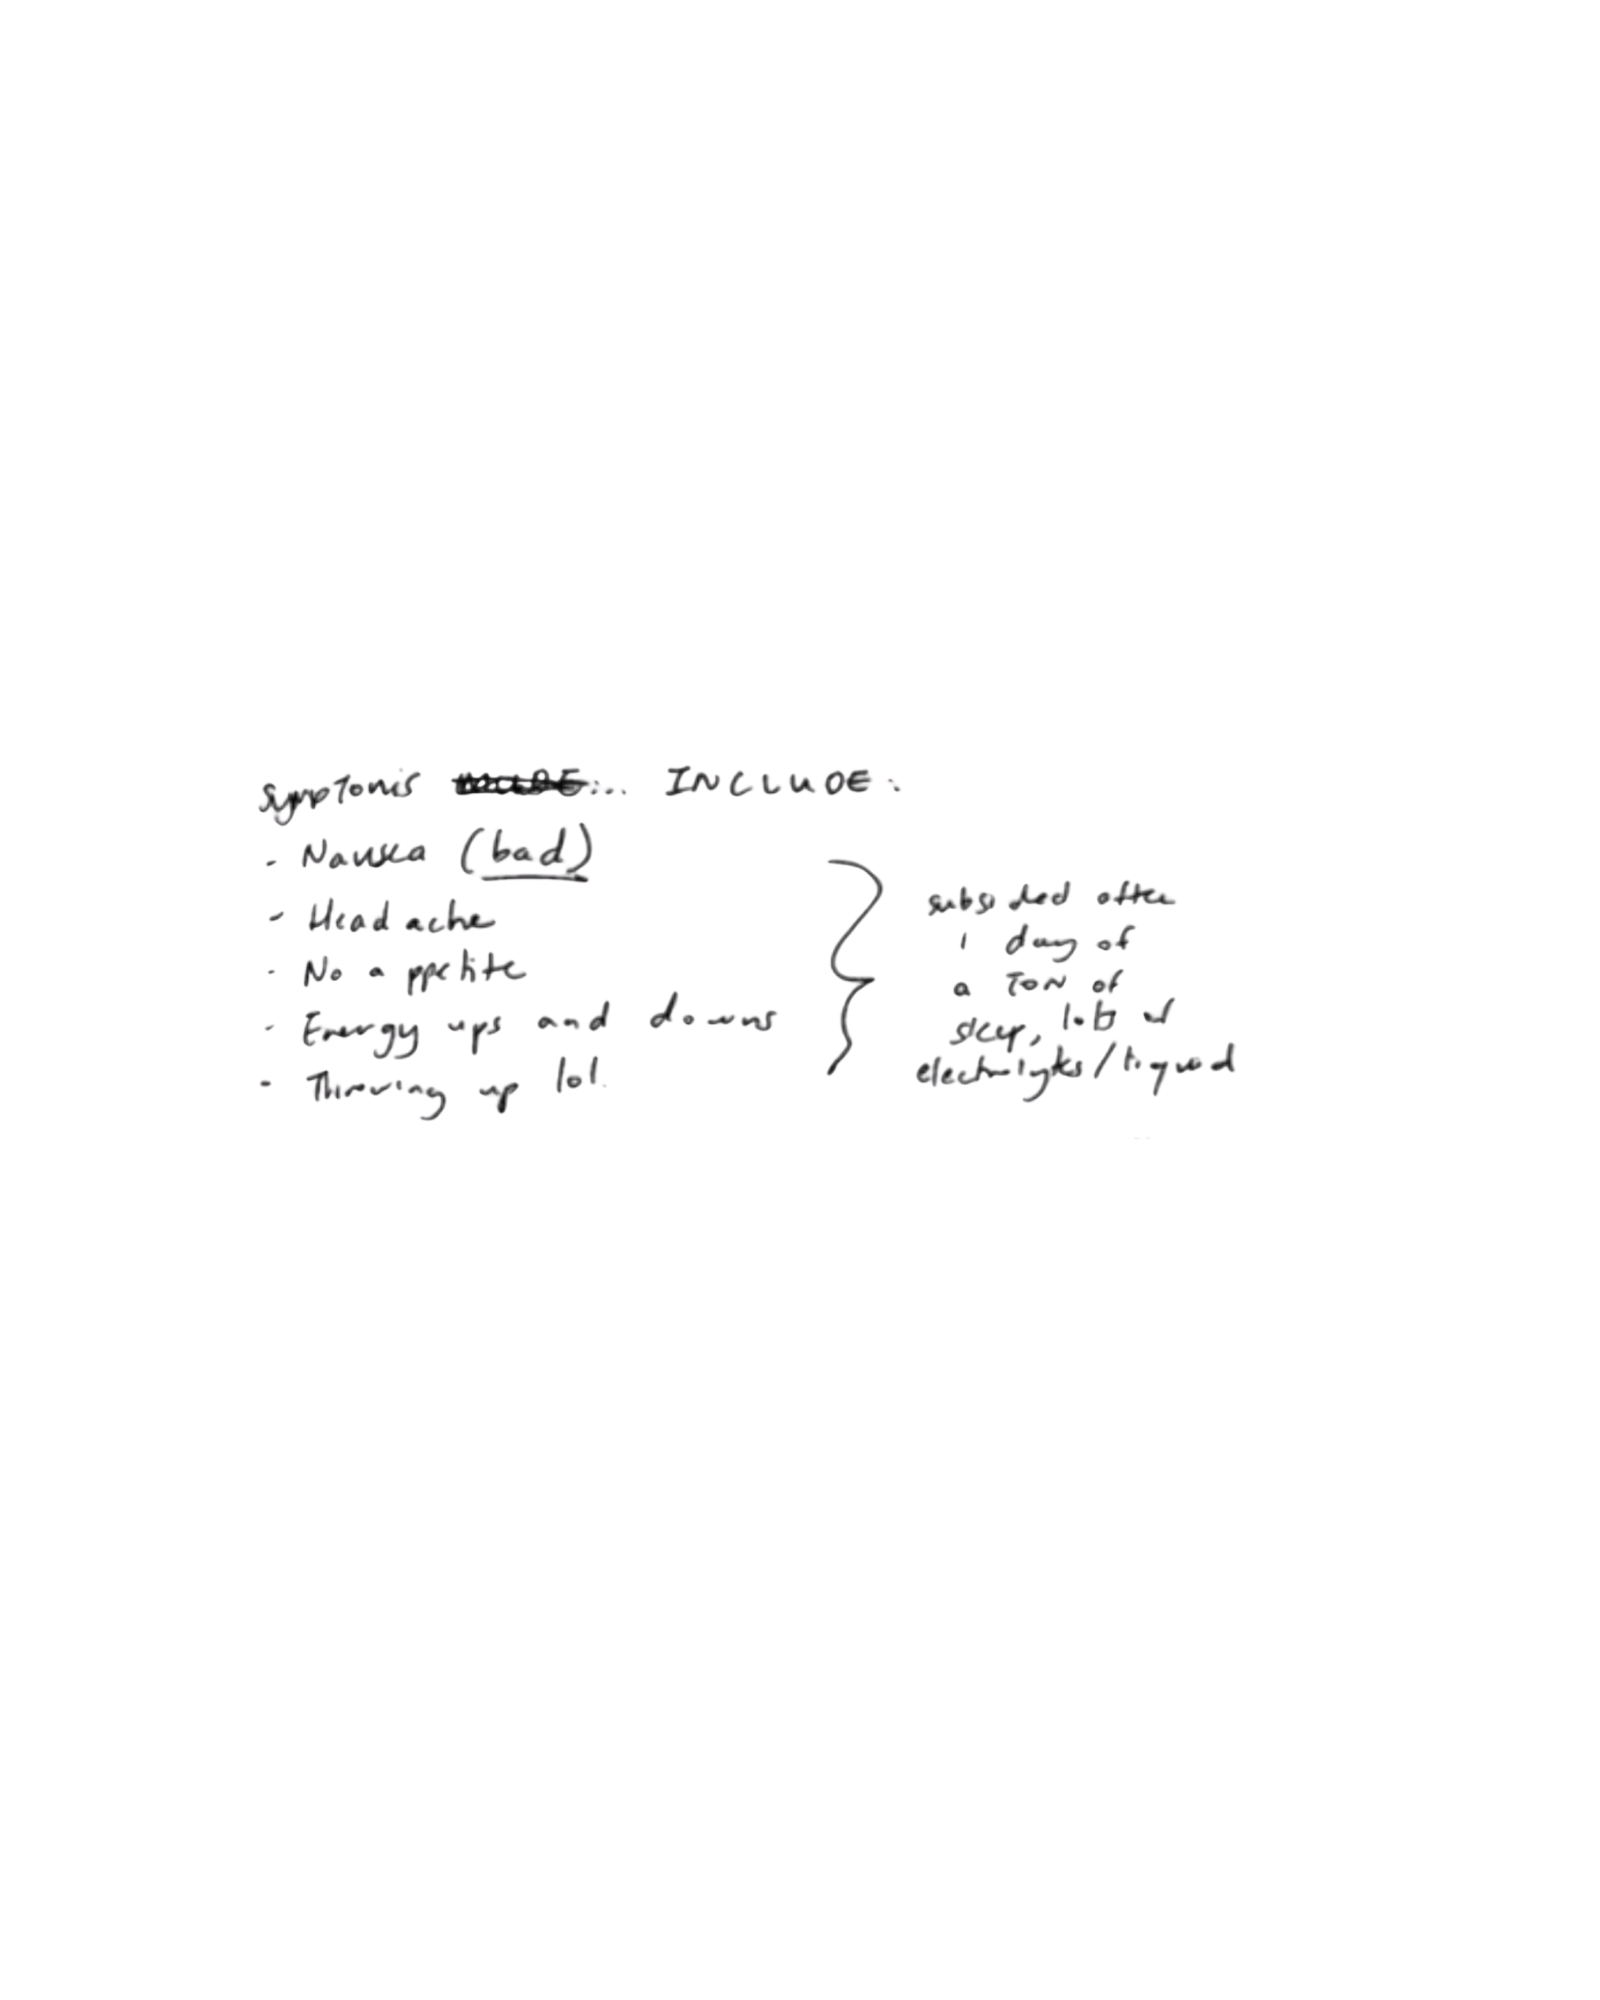 symptoms ... INCLUDE:
- Nausea (bad)
- Headache
- No appetite
- Energy ups and downs
- Throwing up lol.
subsided after
1 day of
a TON of
sleep, lots of
electrolytes/liquid